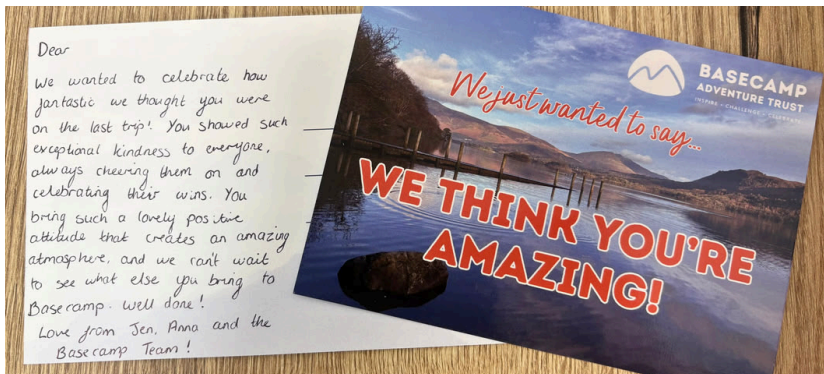 Dear
We wanted to celebrate how
fantastic we thought you were
on the last trip! You showed such
exceptional kindness to everyone,
always cheering them on and
celebrating their wins. You
bring such a lovely positive
attitude that creates an amazing
atmosphere, and we can't wait
to see what else you bring to
Basecamp. Well done!
Love from Jen, Anna and the
Basecamp Team!
BASECAMP
ADVENTURE TRUST
INSPIRE • CHALLENGE • CELEBRATE
We just wanted to say...
WE THINK YOU'RE
AMAZING!